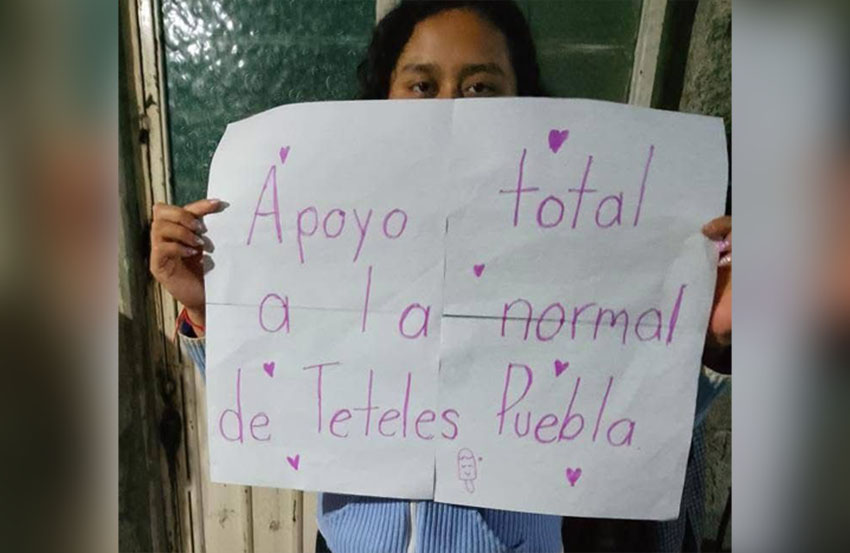 Apoyo total
a la normal
de Teteles Puebla